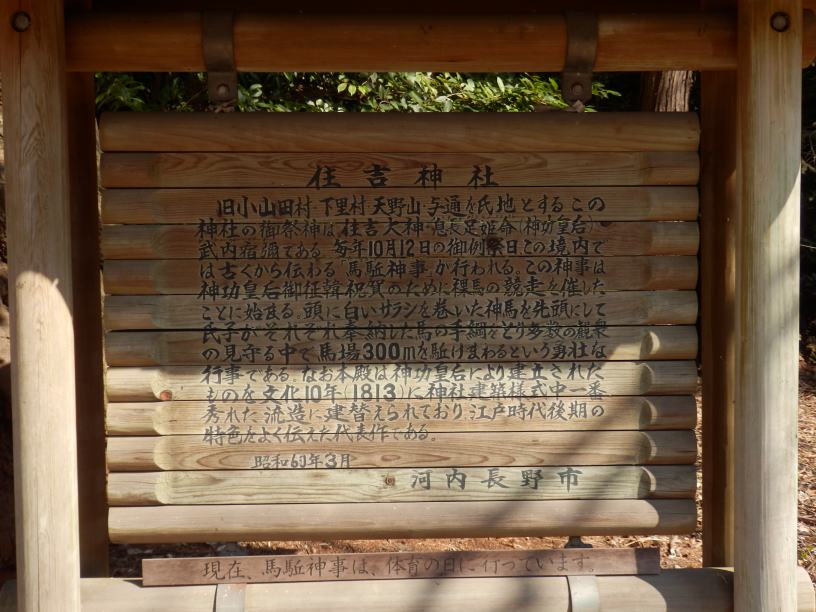 住吉神社
旧小山田村・下里村・天野山・与通を氏地とするこの
神社の御祭神は、住吉大神・息長足姫命(神功皇后)・
武内宿彌である。毎年10月12日の御例祭日、この境内で
は古くから伝わる「馬駈神事」が行われる。この神事は
神功皇后御征韓祝賀のために裸馬の競走を催した
ことに始まる。頭に白いサラシを巻いた神馬を先頭にして
氏子がそれぞれ奉納した馬の手綱をとり多数の観衆
の見守る中で、馬場300mを駈けまわるという勇壮な
行事である。なお本殿は神功皇后により建立された
ものを文化10年(1813)に神社建築様式中一番
秀れた流造に建替えられており、江戸時代後期の
特色をよく伝えた代表作である。
昭和60年3月
河内長野市
現在、馬駈神事は、体育の日に行っています。